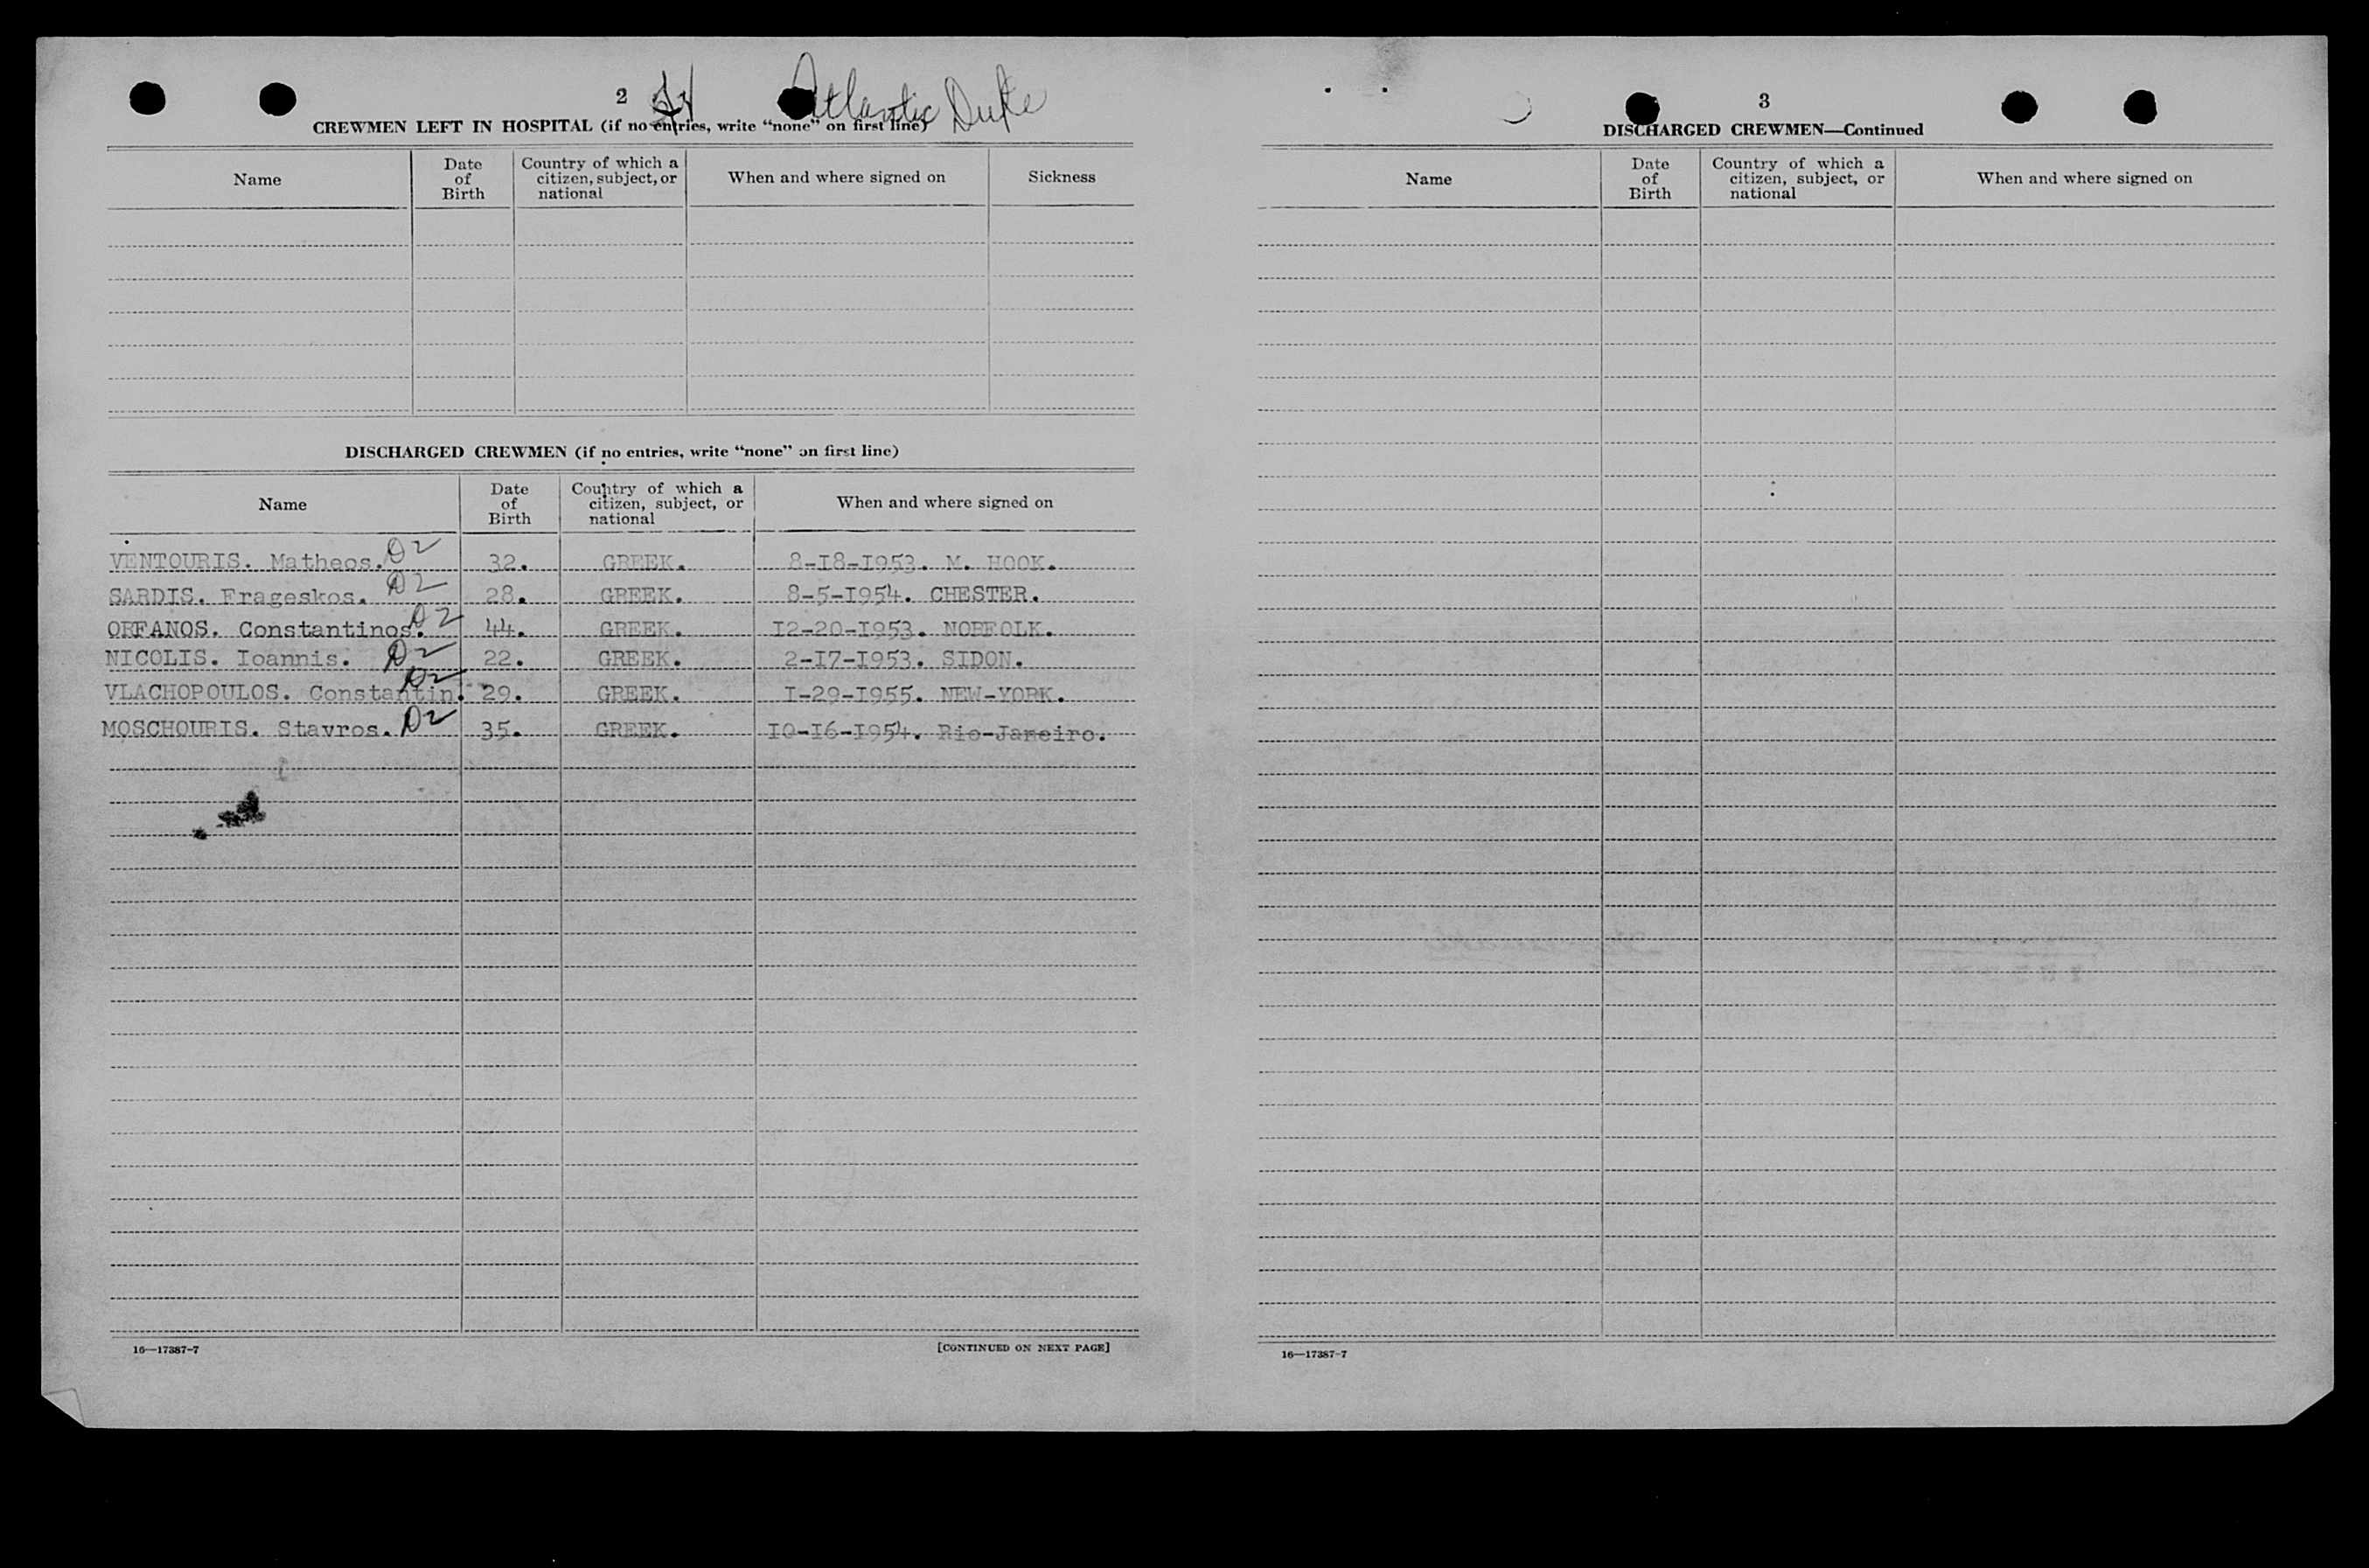 2 Atlantic Duke
CREWMEN LEFT IN HOSPITAL (if no entries, write “none” on first line)
Name Date of Birth Country of which a citizen, subject, or national When and where signed on Sickness
DISCHARGED CREWMEN (if no entries, write “none” on first line)
Name Date of Birth Country of which a citizen, subject, or national When and where signed on
VENTOURIS. Matheos. D2 32. GREEK. 8-I8-I953. M. HOOK.
SARDIS. Frageskos. D2 28. GREEK. 8-5-I954. CHESTER.
ORFANOS. Constantinos. D2 44. GREEK. I2-20-I953. NORFOLK.
NICOLIS. Ioannis. D2 22. GREEK. 2-I7-I953. SIDON.
VLACHOPOULOS. Constantin. D2 29. GREEK. I-29-I955. NEW-YORK.
MOSCHOURIS. Stavros. D2 35. GREEK. I0-I6-I954. Rio-Janeiro.
16—17387-7 [CONTINUED ON NEXT PAGE]
3
DISCHARGED CREWMEN—Continued
Name Date of Birth Country of which a citizen, subject, or national When and where signed on
16—17387-7